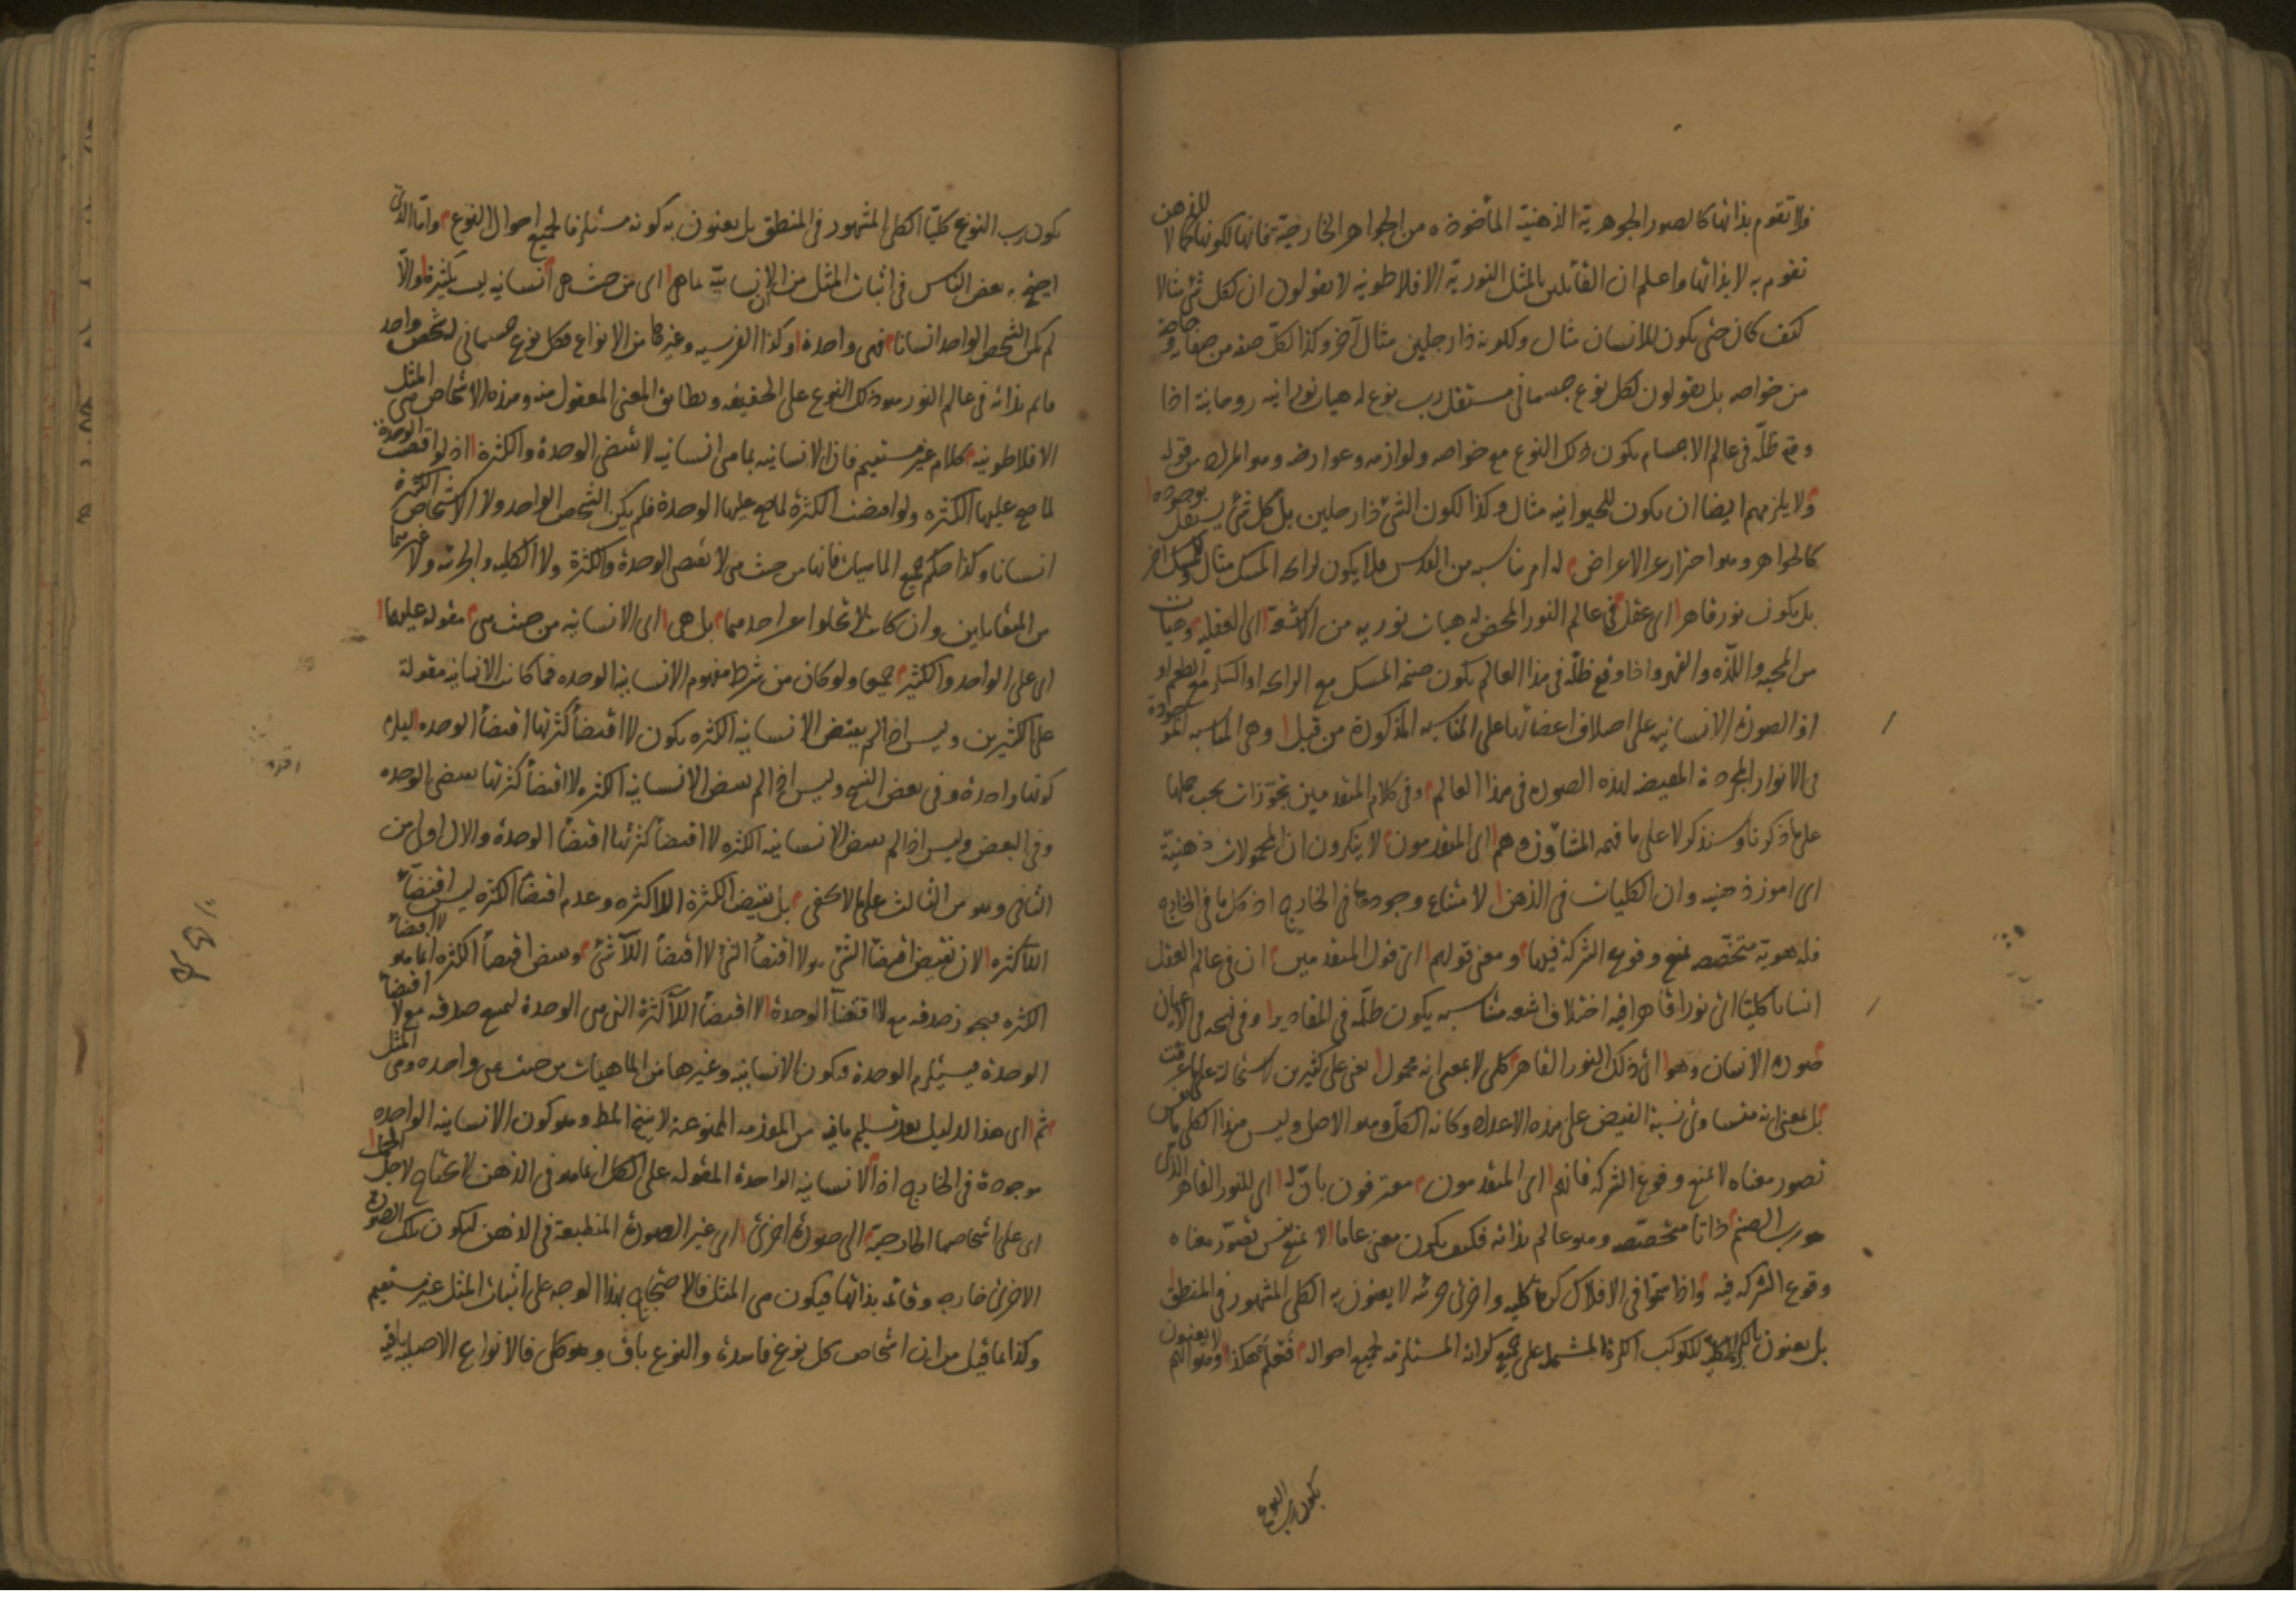 فلا تقوم بذاتها كالصور الجوهرية الذهنية المأخوذة من الجواهر الخارجية فانها لكونها كمالا للذهن
تقوم به لا بذاتها واعلم ان القائلين بالمثل النورية الافلاطونية لا يقولون ان لكل شئ مثالا
كيف كان حتى يكون للانسان مثال ولكونه ذا رجلين مثال آخر وكذا لكل صفة من صفاته وخاصة
من خواصه بل يقولون لكل نوع جسمانى مستقل رب نوع له هيات نورانية روحانية اذا
وقع ظله فى عالم الاجسام يكون ذلك النوع مع خواصه ولوازمه وعوارضه وهو المراد من قوله
ولا يلزمهم ايضا ان يكون للحيوانية مثال وكذا لكون الشئ ذا رجلين بل كل شئ يستقل بوجوده
كالجواهر وهو احتراز عن الاعراض له امر يناسبه من القدس فلا يكون لرائحة المسك مثال وللمسك آخر
بل يكون نور قاهر اى عقل فى عالم النور المحض له هيات نورية من الاشعة اى العقلية وهيات
من المحبة واللذة والقهر واذا وقع ظله فى هذا العالم يكون صنمه المسك مع الرائحة او السكر مع الطعم او
او الصورة الانسانية على اختلاف اعضائها على المناسبة المذكورة من قبل وهى المناسبة الموجودة
فى الانوار المجردة المفيضة لهذه الصورة فى هذا العالم وفى كلام المتقدمين تجوزات يجب حملها
على ما ذكرنا وسنذكر لا على ما فهمه المشاؤون وهم اى المتقدمون لا ينكرون ان المحمولات ذهنية
اى امور ذهنية وان الكليات فى الذهن لامتناع وجودها فى الخارج اذ كل ما فى الخارج
فله هوية متخصصة تمنع وقوع الشركة فيها ومعنى قولهم اى قول المتقدمين ان فى عالم العقل
انسانا كليا اى نورا قاهرا فيه اختلاف اشعة متناسبة يكون ظله فى المقادير وفى نسخة فى الاعيان
صورة الانسان وهو اى ذلك النور القاهر كلى لا بمعنى انه محمول يعنى على كثيرين لاستحالة على ما عرفت
بل بمعنى انه متساوى نسبة الفيض على هذه الاعداد وكانه الكل وهو الاصل وليس هذا الكلى ما نفس
تصور معناه لا تمنع وقوع الشركة فانهم اى المتقدمون معترفون بان له اى للنور القاهر الذى
هو رب الصنم ذاتا متخصصة وهو عالم بذاته فكيف يكون معنى عاما لا تمنع نفس تصور معناه
وقوع الشركة فيه واذا سموا فى الافلاك كرة كلية واخرى جزئية لا يعنون به الكلى المشهور فى المنطق
بل يعنون بالكرة الكلية للكوكب الكرة المشتملة على جميع كراته المستلزمة لجميع احواله فتعلم هكذا وهو انهم لا يعنون
بكون رب النوع
بكون رب النوع كليا الكلى المشهور فى المنطق بل يعنون به كونه مستلزما لجميع احوال النوع واما الذى
احتج به بعض الناس فى اثبات المثل من ان الانسانية بما هى اى من حيث هى انسانية ليست بكثيرة والا
لم يكن الشخص الواحد انسانا فهى واحدة وكذا الفرسية وغيرها من الانواع فكل نوع جسمانى له شخص واحد
قائم بذاته فى عالم النور هو ذلك النوع على الحقيقة ويطابق المعنى المعقول منه وهذه الاشخاص هى المثل
الافلاطونية كلام غير مستقيم فان الانسانية بما هى انسانية لا تقتضى الوحدة والكثرة اذ لو اقتضت الوحدة
لما صح عليها الكثرة ولو اقتضت الكثرة لما صح عليها الوحدة فلم يكن الشخص الواحد ولا الاشخاص الكثيرة
انسانا وكذا حكم جميع الماهيات فانها من حيث هى لا تقتضى الوحدة والكثرة ولا الكلية والجزئية ولا غيرهما
من المتقابلين وان كانت لا تخلو عن احد منهما بل هى اى الانسانية من حيث هى مقولة عليهما
اى على الواحد والكثير جميعا ولو كان من شرط مفهوم الانسانية الوحدة فما كانت الانسانية مقولة
على الكثيرين وليس اذا لم يقتض الانسانية الكثرة يكون لا اقتضاء كثرتها اقتضاء الوحدة ليلزم
كونها واحدة وفى بعض النسخ وليس اذا لم يقتض الانسانية الكثرة لا اقتضاء كثرتها يقتضى الوحدة
وفى البعض وليس اذا لم يقتض الانسانية الكثرة لا اقتضاء كثرتها اقتضاء الوحدة والاول اولى من
الثانى وهو من الثالث على ما لا يخفى بل نقيض الكثرة اللاكثرة وعدم اقتضاء الكثرة ليس اقتضاء
اللاكثرة لان نقيض اقتضاء الشئ هو لا اقتضاء الشئ لا اقتضاء اللاشئ ونقيض اقتضاء الكثرة انما هو لا اقتضاء
الكثرة فيجوز صدقه مع لا اقتضاء الوحدة لا اقتضاء اللاكثرة التى هى الوحدة ليمتنع صدقه مع لا اقتضاء
الوحدة فيستلزم الوحدة فتكون الانسانية وغيرها من الماهيات من حيث هى واحدة وهى المثل
ثم اى هذا الدليل بعد تسليم ما فيه من المقدمة الممنوعة لا ينتج المط وهو كون الانسانية الواحدة
موجودة فى الخارج اذ الانسانية الواحدة المقولة على الكل انما هو فى الذهن لا يحتاج لاجل الحمل
اى على اشخاصها الخارجية الى صورة اخرى اى غير الصورة المنطبعة فى الذهن ليكون تلك الصورة
الاخرى خارجية وقائمة بذاتها فيكون هى المثل فالاحتجاج بهذا الوجه على اثبات المثل غير مستقيم
وكذا ما قيل من ان اشخاص كل نوع فاسدة والنوع باق وهو كلى فالانواع الاصلية باقية